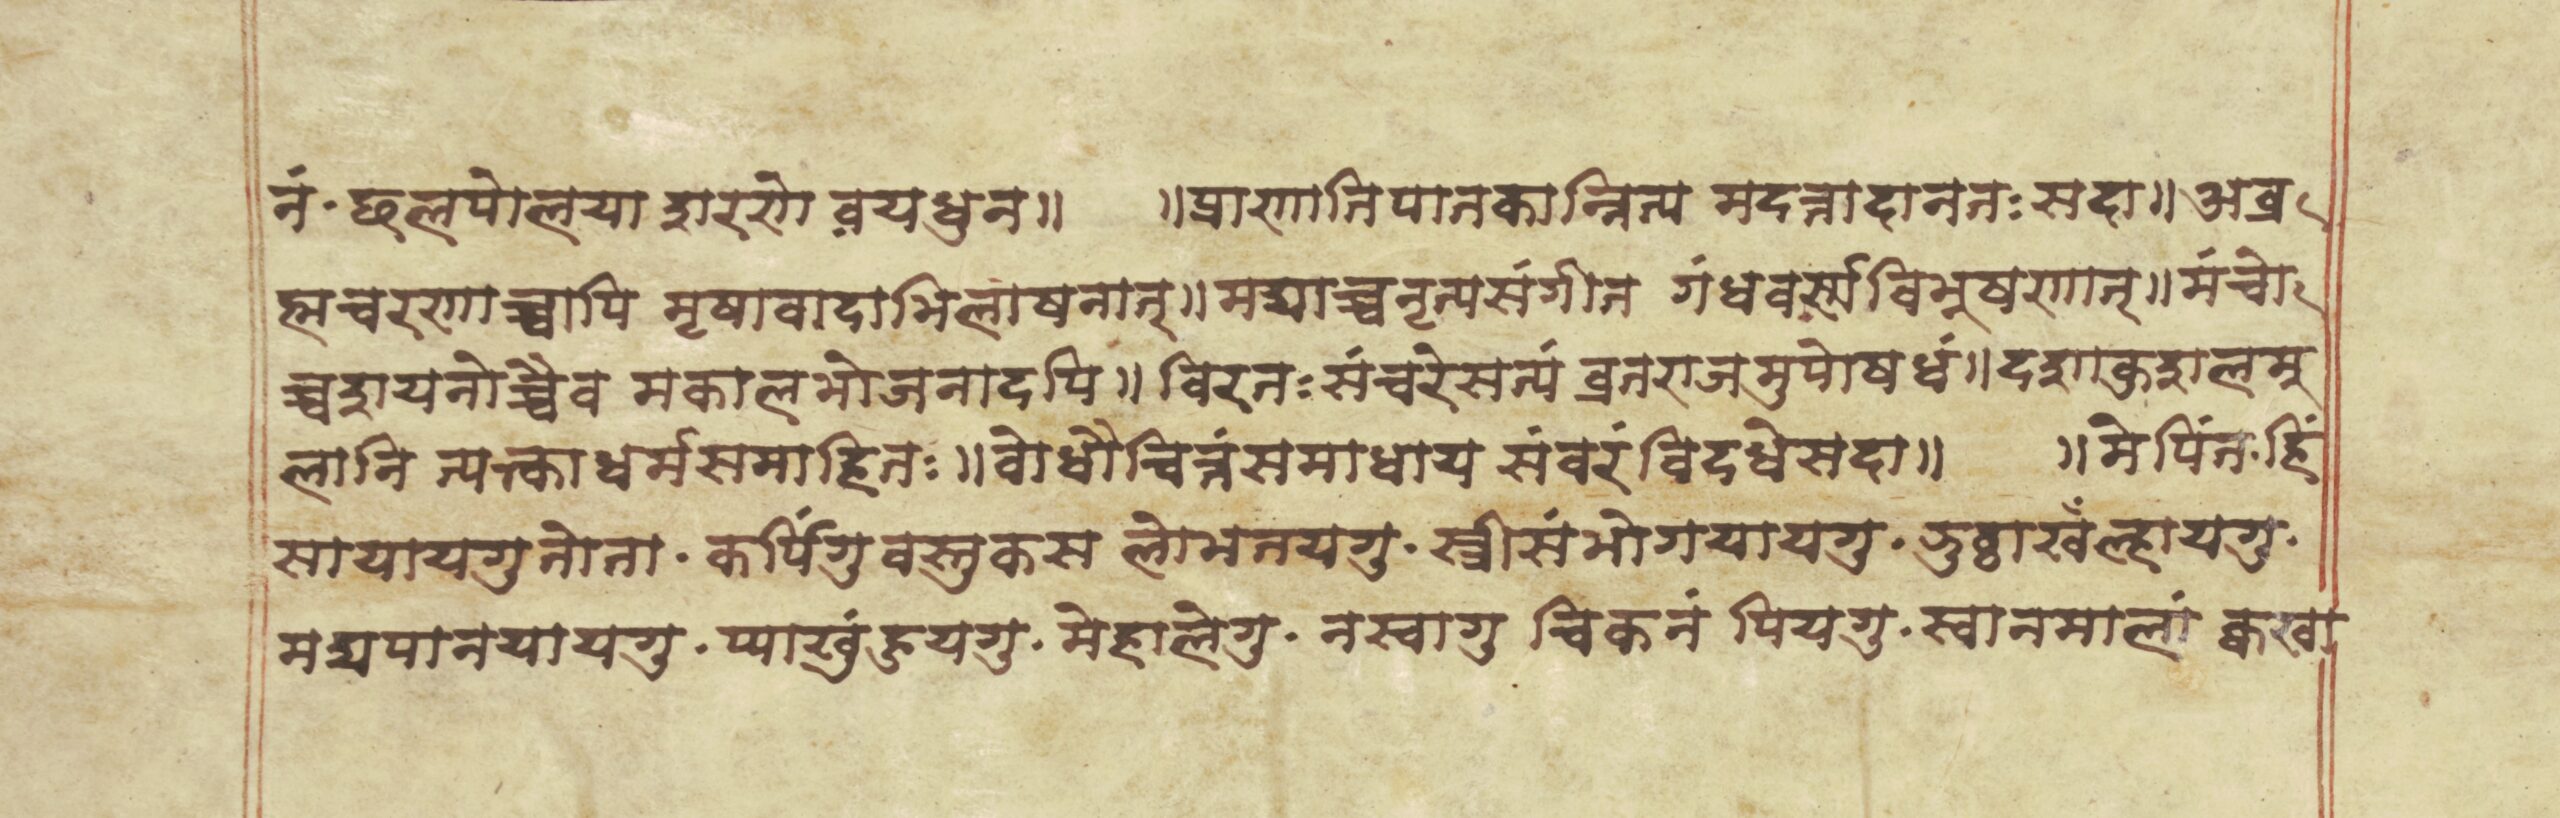 नं· छलपोलया शरणे वयधुन॥ ॥प्राणातिपातकान्नित्य मदत्तादानतः सदा॥ अब्र
ह्मचरणाच्चापि मृषावादाभिलाषनात्॥ मद्याच्चनृत्यसंगीत गंधवर्स्मविभुषणात्॥ मंचो
च्चशयनोच्चैव मकालभोजनादपि॥ विरतः संचरेसत्यं व्रतराजमुपोषधं॥ दशाकुशलमु
लानि त्यक्ताधर्मसमाहितः॥ वोधौचित्तंसमाधाय संवरं विदधेसदा॥ ॥मेपिंत·हिं
सायायगुतोता· कपिंगुवस्तुकस लोभतयगु· स्त्रीसंभोगयायगु· फुठ्ठाखँल्हायगु·
मद्यपानयायगु· प्याखुंहुयगु· मेहालेगु· नस्वागु चिकनं पियगु· स्वानमालां क्वखा